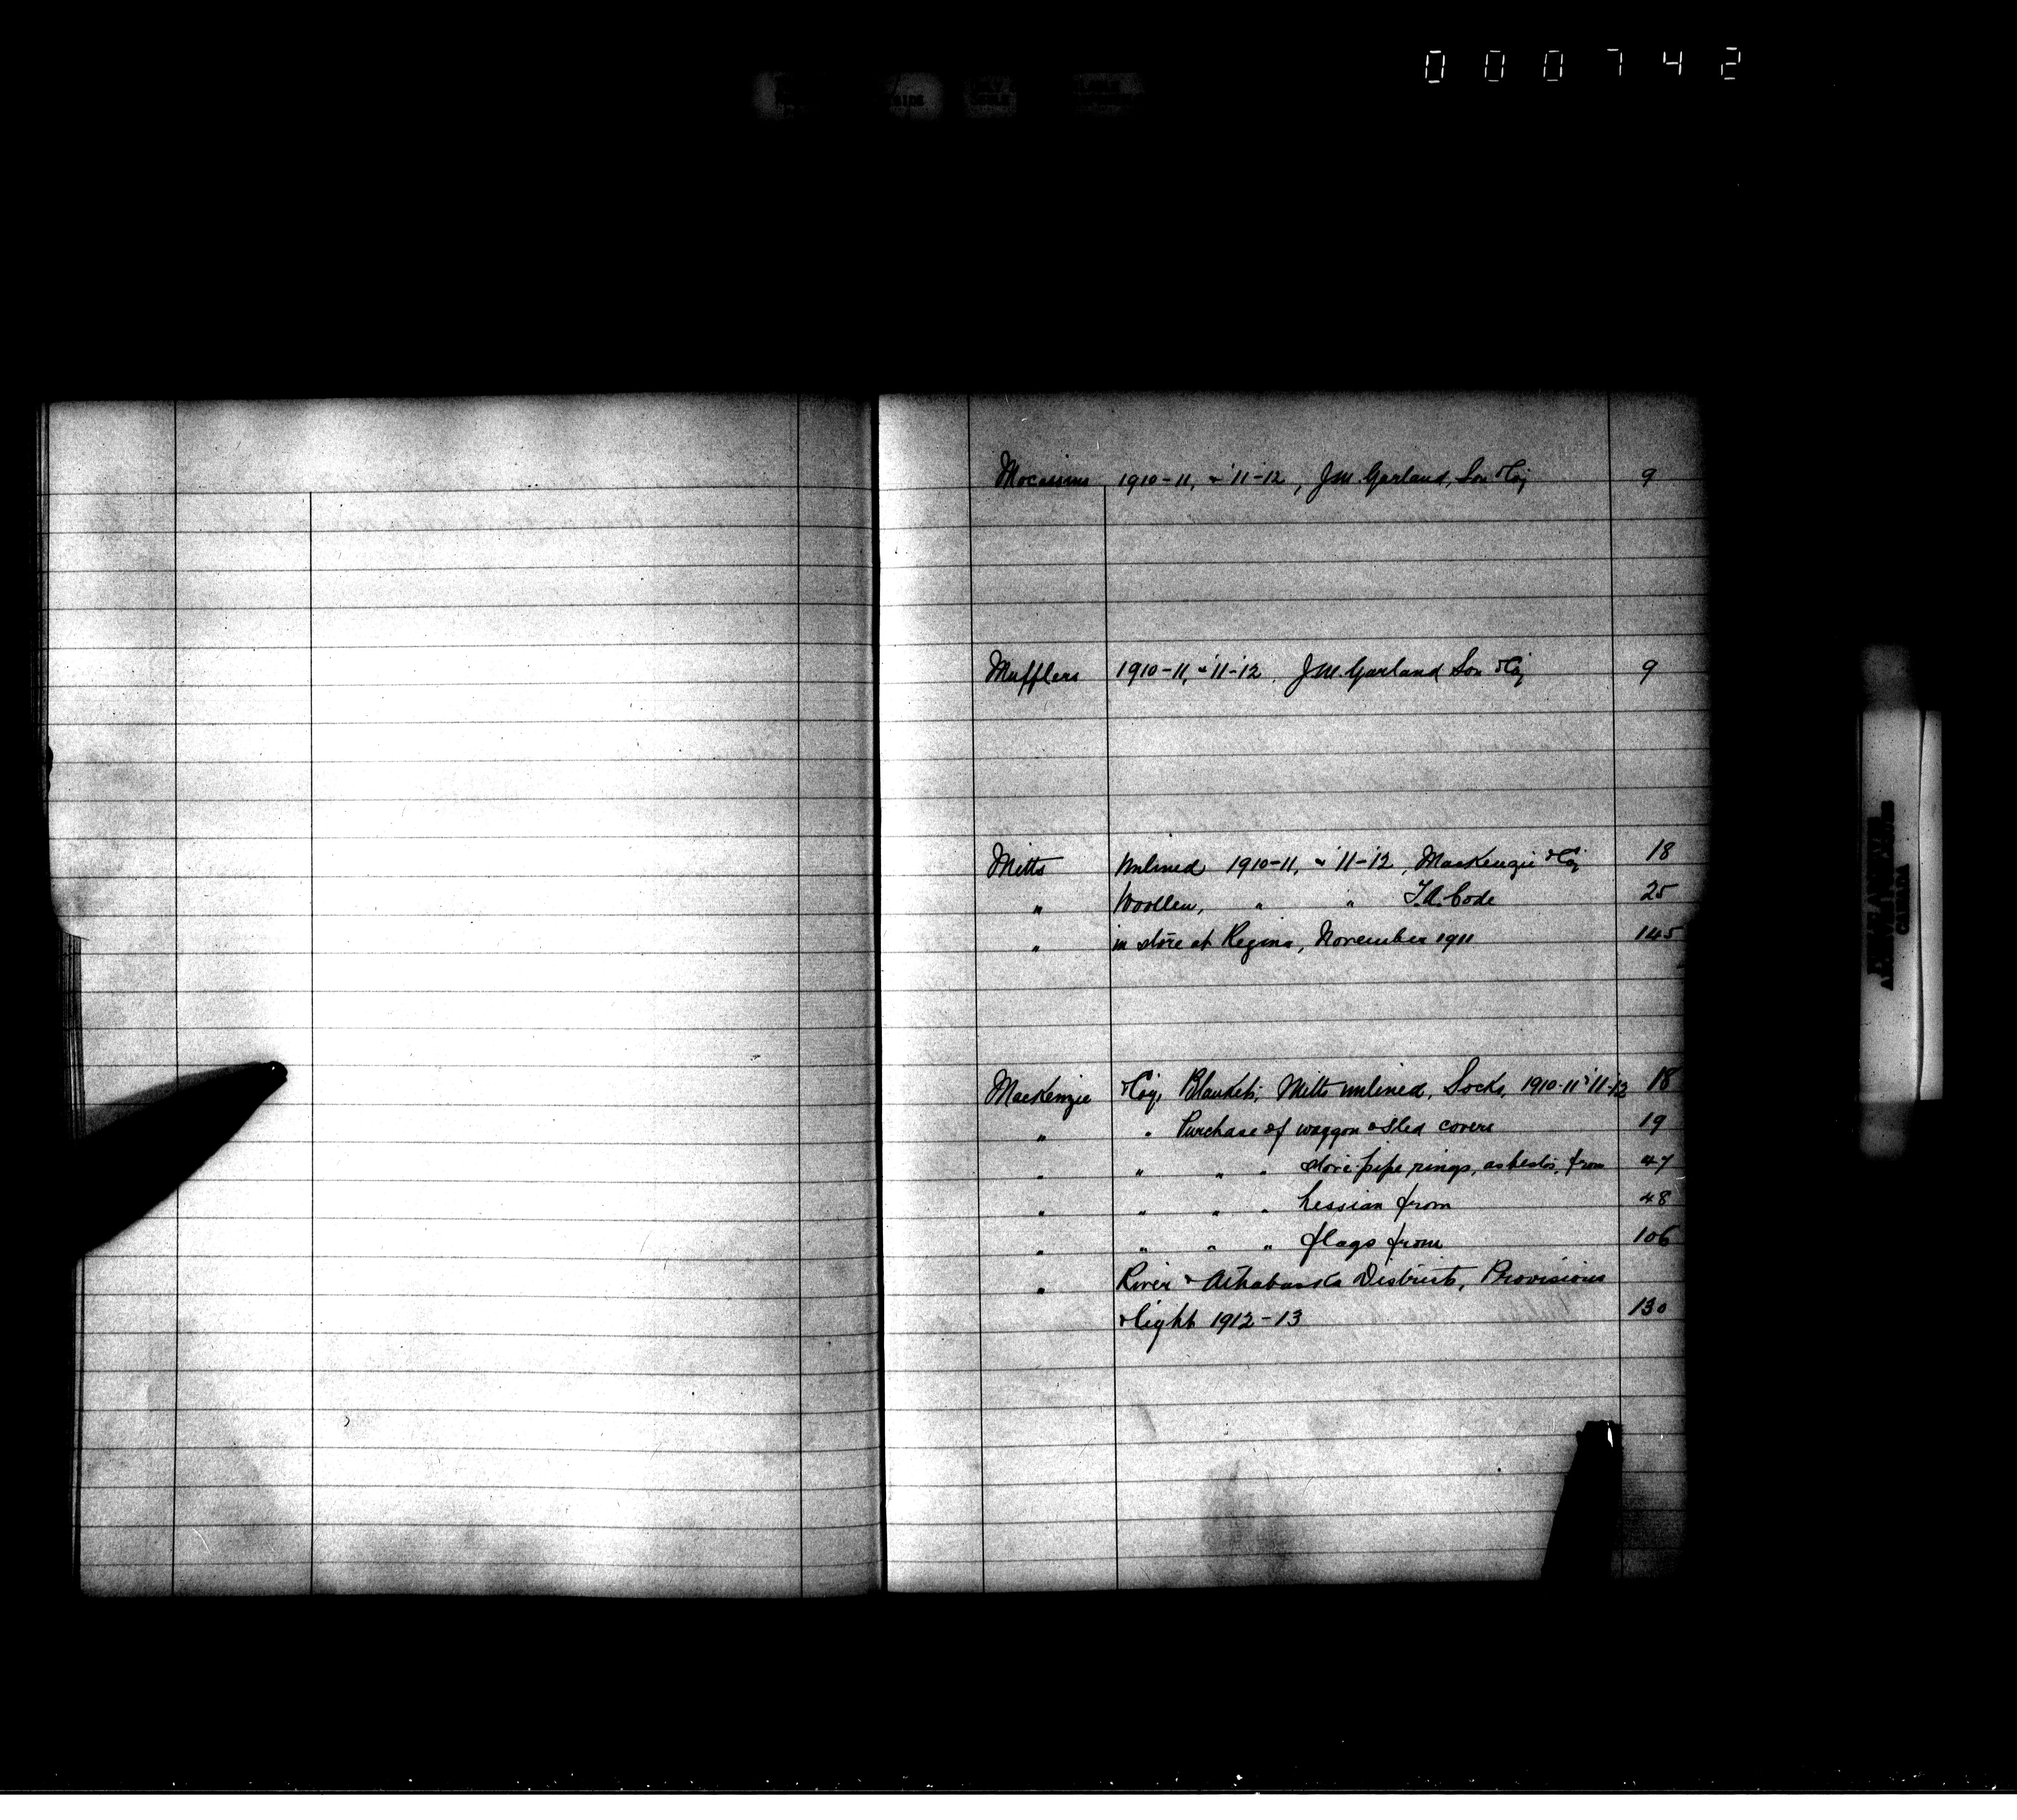 000742
Mocassins 1910-11, & '11-'12, J.M. Garland, Son & Coy 9
Mufflers 1910-11, & '11-'12. J.M. Garland Son & Coy 9
Mitts Unlined 1910-11, & '11-'12, MacKenzie & Coy 18
" Woollen, " " T.A. Code 25
" in store at Regina, November 1911 145
MacKenzie & Coy, Blankets, Mitts unlined, Socks, 1910-11 & '11-12 18
" " Purchase of waggon & sled covers 19
" " " " stove-pipe rings, asbestos, from 47
" " " " hessian from 48
" " " " flags from 106
" River & Athabaska Districts, Provisions
& light 1912-13 130